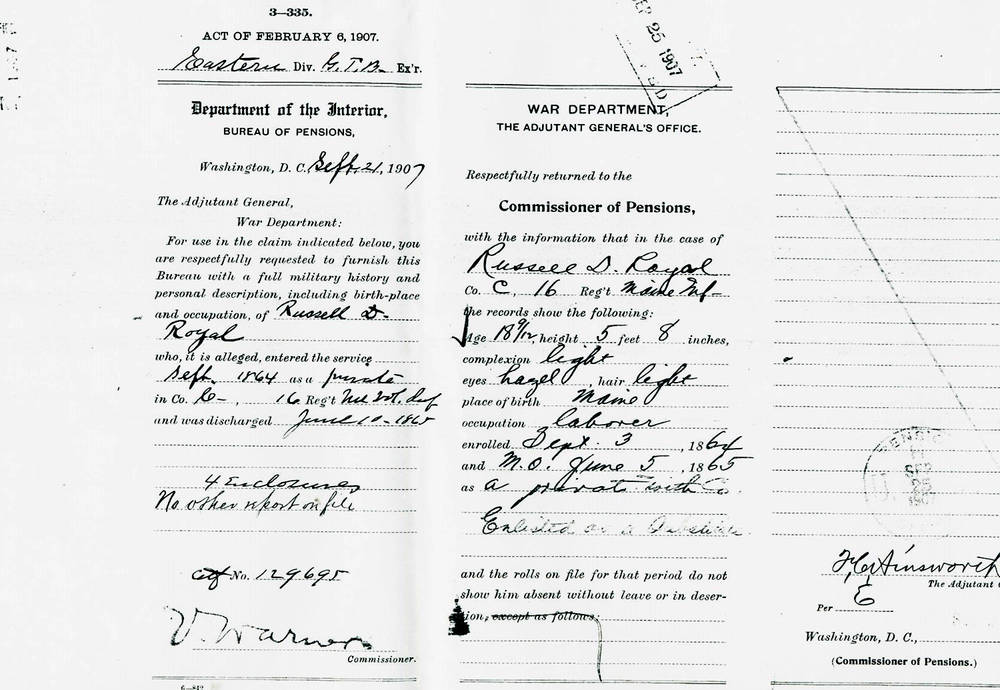 3—335.
ACT OF FEBRUARY 6, 1907.
Eastern Div. G.T.B. Ex'r.
Department of the Interior,
BUREAU OF PENSIONS,
Washington, D. C. Sept. 21, 1907
The Adjutant General,
War Department:
For use in the claim indicated below, you
are respectfully requested to furnish this
Bureau with a full military history and
personal description, including birth-place
and occupation, of Russell D.
Royal
who, it is alleged, entered the service
Sept. 1864 as a private
in Co. C, 16 Reg't Me Vol. Inf
and was discharged June 10-1865
4 Enclosures
No other report on file
Ctf No. 129695
V. Warner
Commissioner.
SEP 25 1907
WAR DEPARTMENT,
THE ADJUTANT GENERAL'S OFFICE.
Respectfully returned to the
Commissioner of Pensions,
with the information that in the case of
Russell D. Royal
Co. C, 16 Reg't Maine Inf
the records show the following:
Age 18 9/12, height 5 feet 8 inches,
complexion light
eyes hazel, hair light
place of birth Maine
occupation laborer
enrolled Sept. 3, 1864
and M.O. June 5, 1865
as a private with Co.
Enlisted as a Substitute
and the rolls on file for that period do not
show him absent without leave or in deser-
tion, except as follows:
PENSION
SEP
25
1907
F C Ainsworth
The Adjutant
Per E
Washington, D. C.,
(Commissioner of Pensions.)